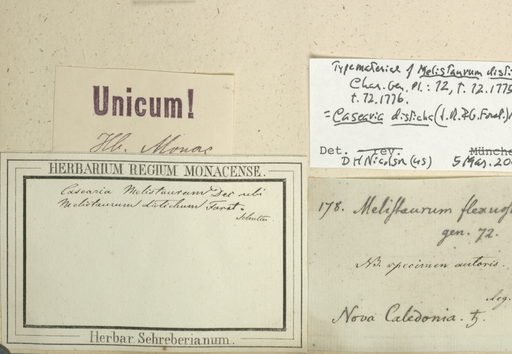 Unicum!
Hb. Monac
HERBARIUM REGIUM MONACENSE.
Casearia Melistaurum Dec
Melistaurum distichum Forst.
Herbar. Schreberianum.
Type material of Melistaurum disti
Char. Gen. Pl.: 72, t. 72. 1775
t. 72. 1776.
= Casearia disticha (
Det. Rev. Münche
D H Nicolson (US) 5 Mar. 200
178. Melistaurum flexuos
gen. 72.
NB. specimen autoris.
Nova Caledonia. ♄.